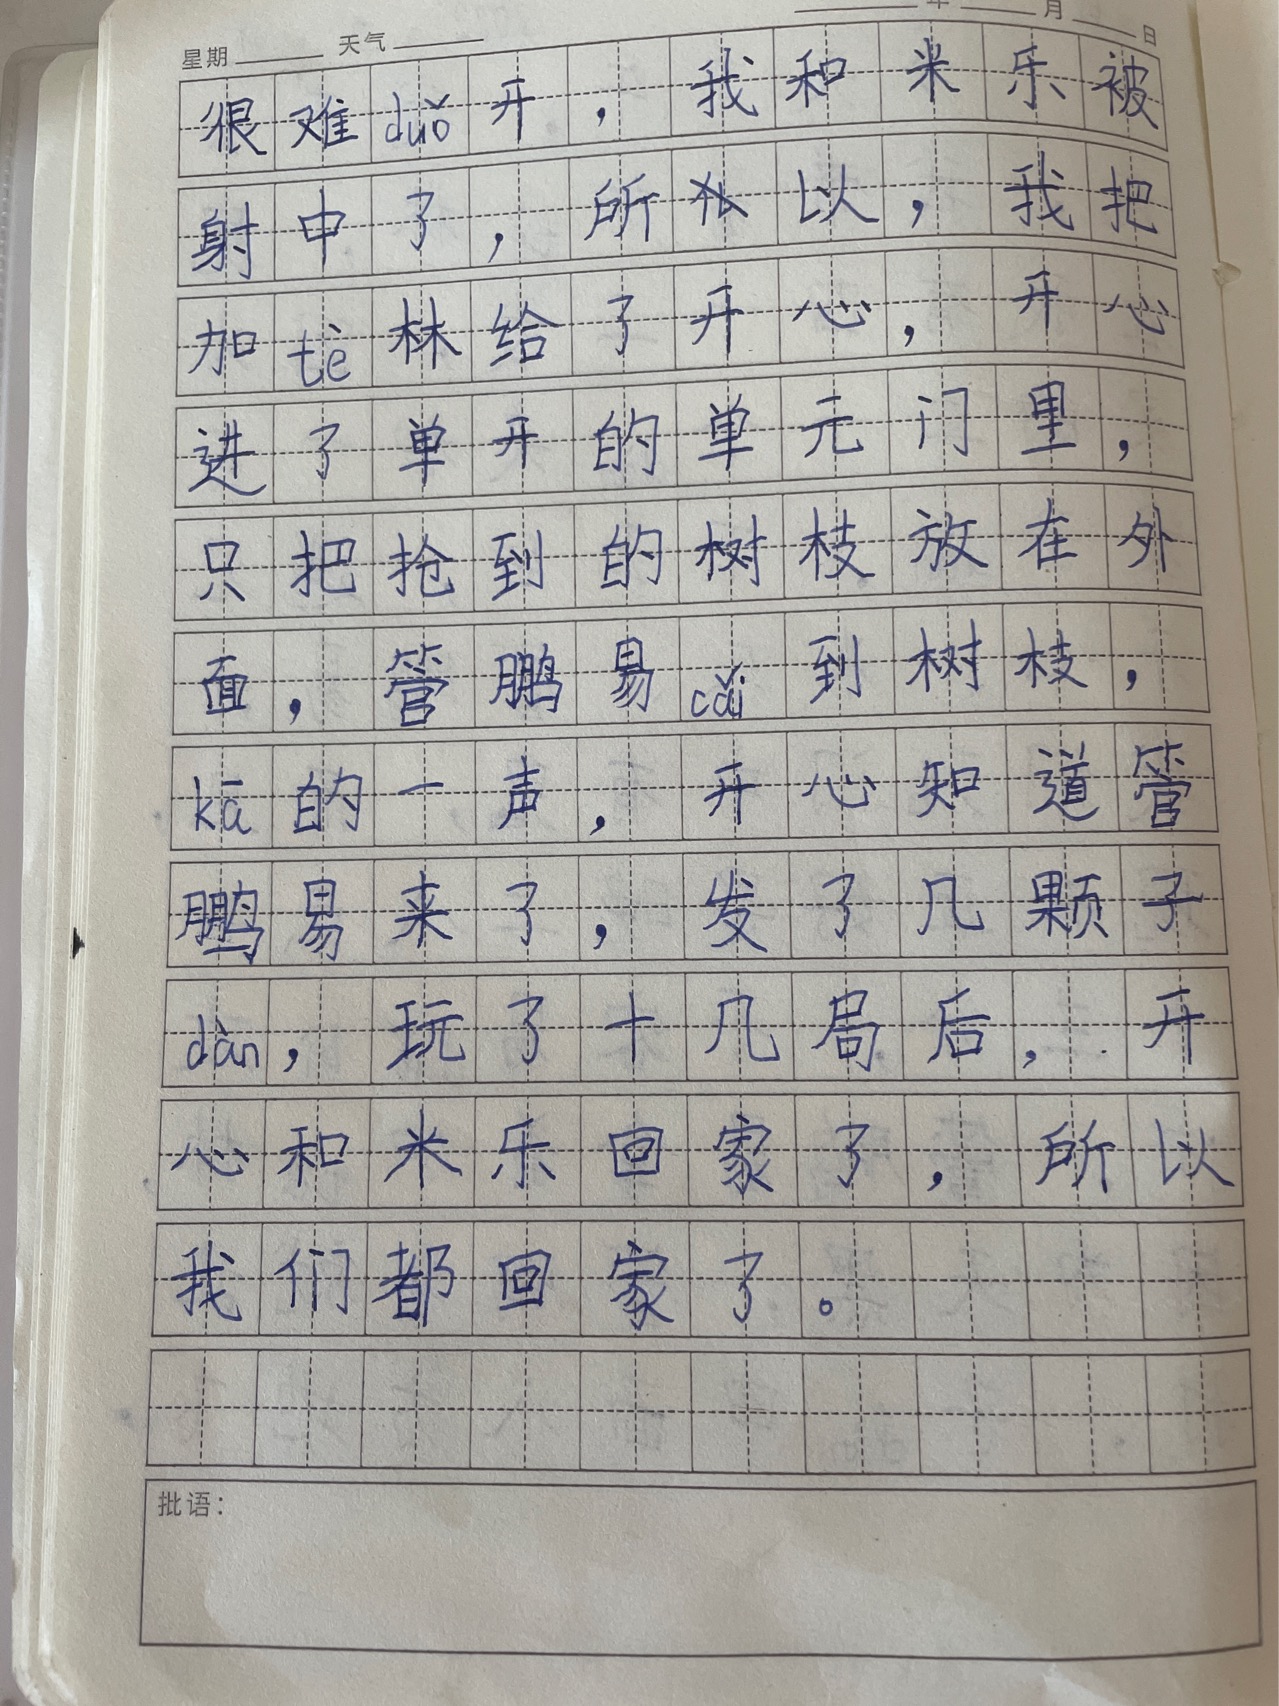 年 月 日
星期 天气
很难duǒ开，我和米乐被
射中了，所以，我把
加tè林给了开心，开心
进了单开的单元门里，
只把抢到的树枝放在外
面，管鹏易cǎi到树枝，
kā的一声，开心知道管
鹏易来了，发了几颗子
dàn，玩了十几局后，开
心和米乐回家了，所以
我们都回家了。
批语：